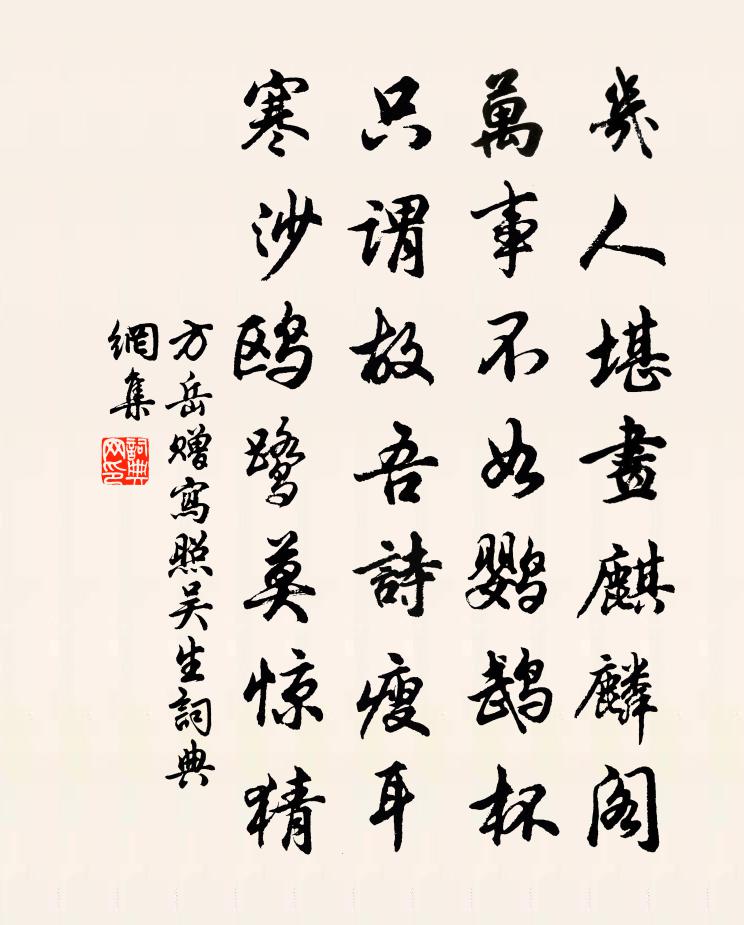 幾人堪畫麒麟閣
萬事不如鸚鵡杯
只謂故吾詩瘦耳
寒沙鸥鹭莫惊猜
方岳赠寫照吴生詞典
網集
詞典
网印